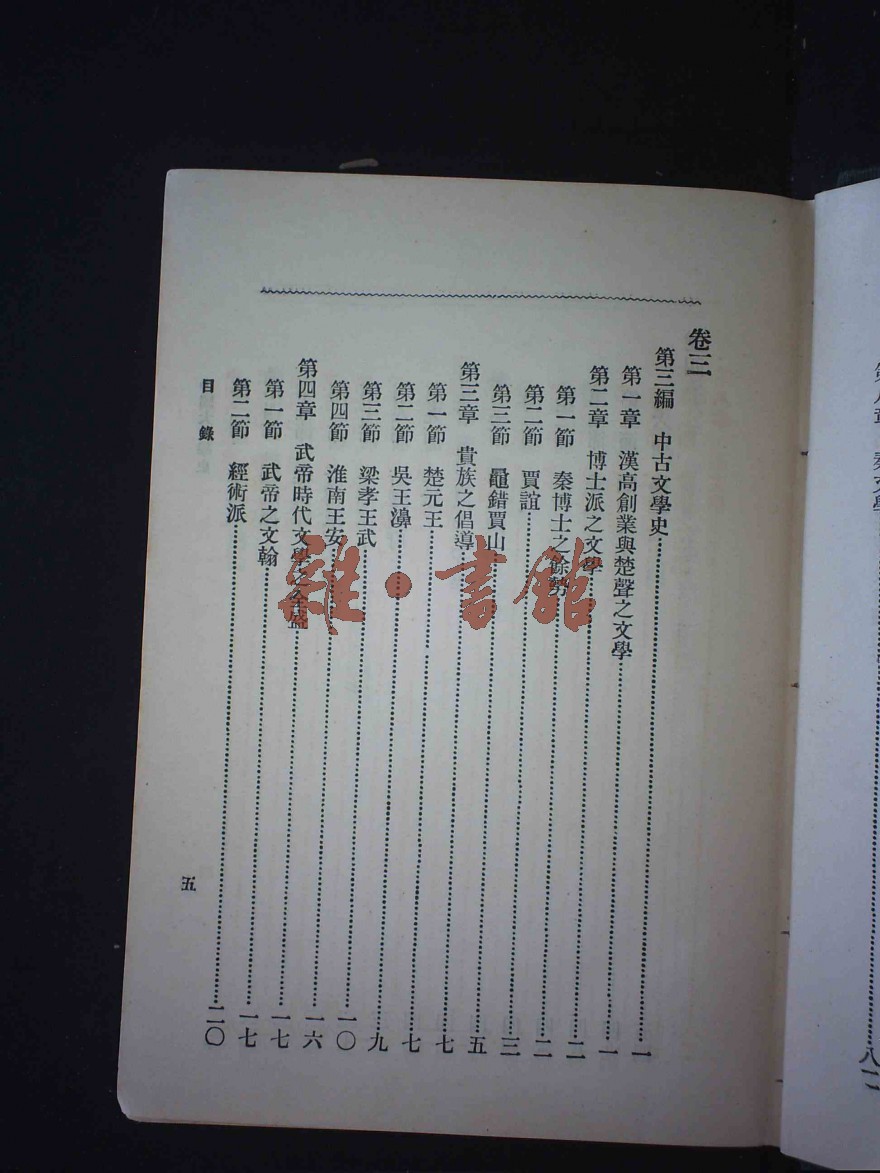 卷三
第三編 中古文學史 一
第一章 漢高創業與楚聲之文學 一
第二章 博士派之文學 二
第一節 秦博士之餘勢 二
第二節 賈誼 三
第三節 鼂錯賈山 五
第三章 貴族之倡導 七
第一節 楚元王 七
第二節 吳王濞 九
第三節 梁孝王武 一〇
第四節 淮南王安 一六
第四章 武帝時代文學之全盛 一七
第一節 武帝之文翰 一七
第二節 經術派 二〇
目錄
五
雜·書館